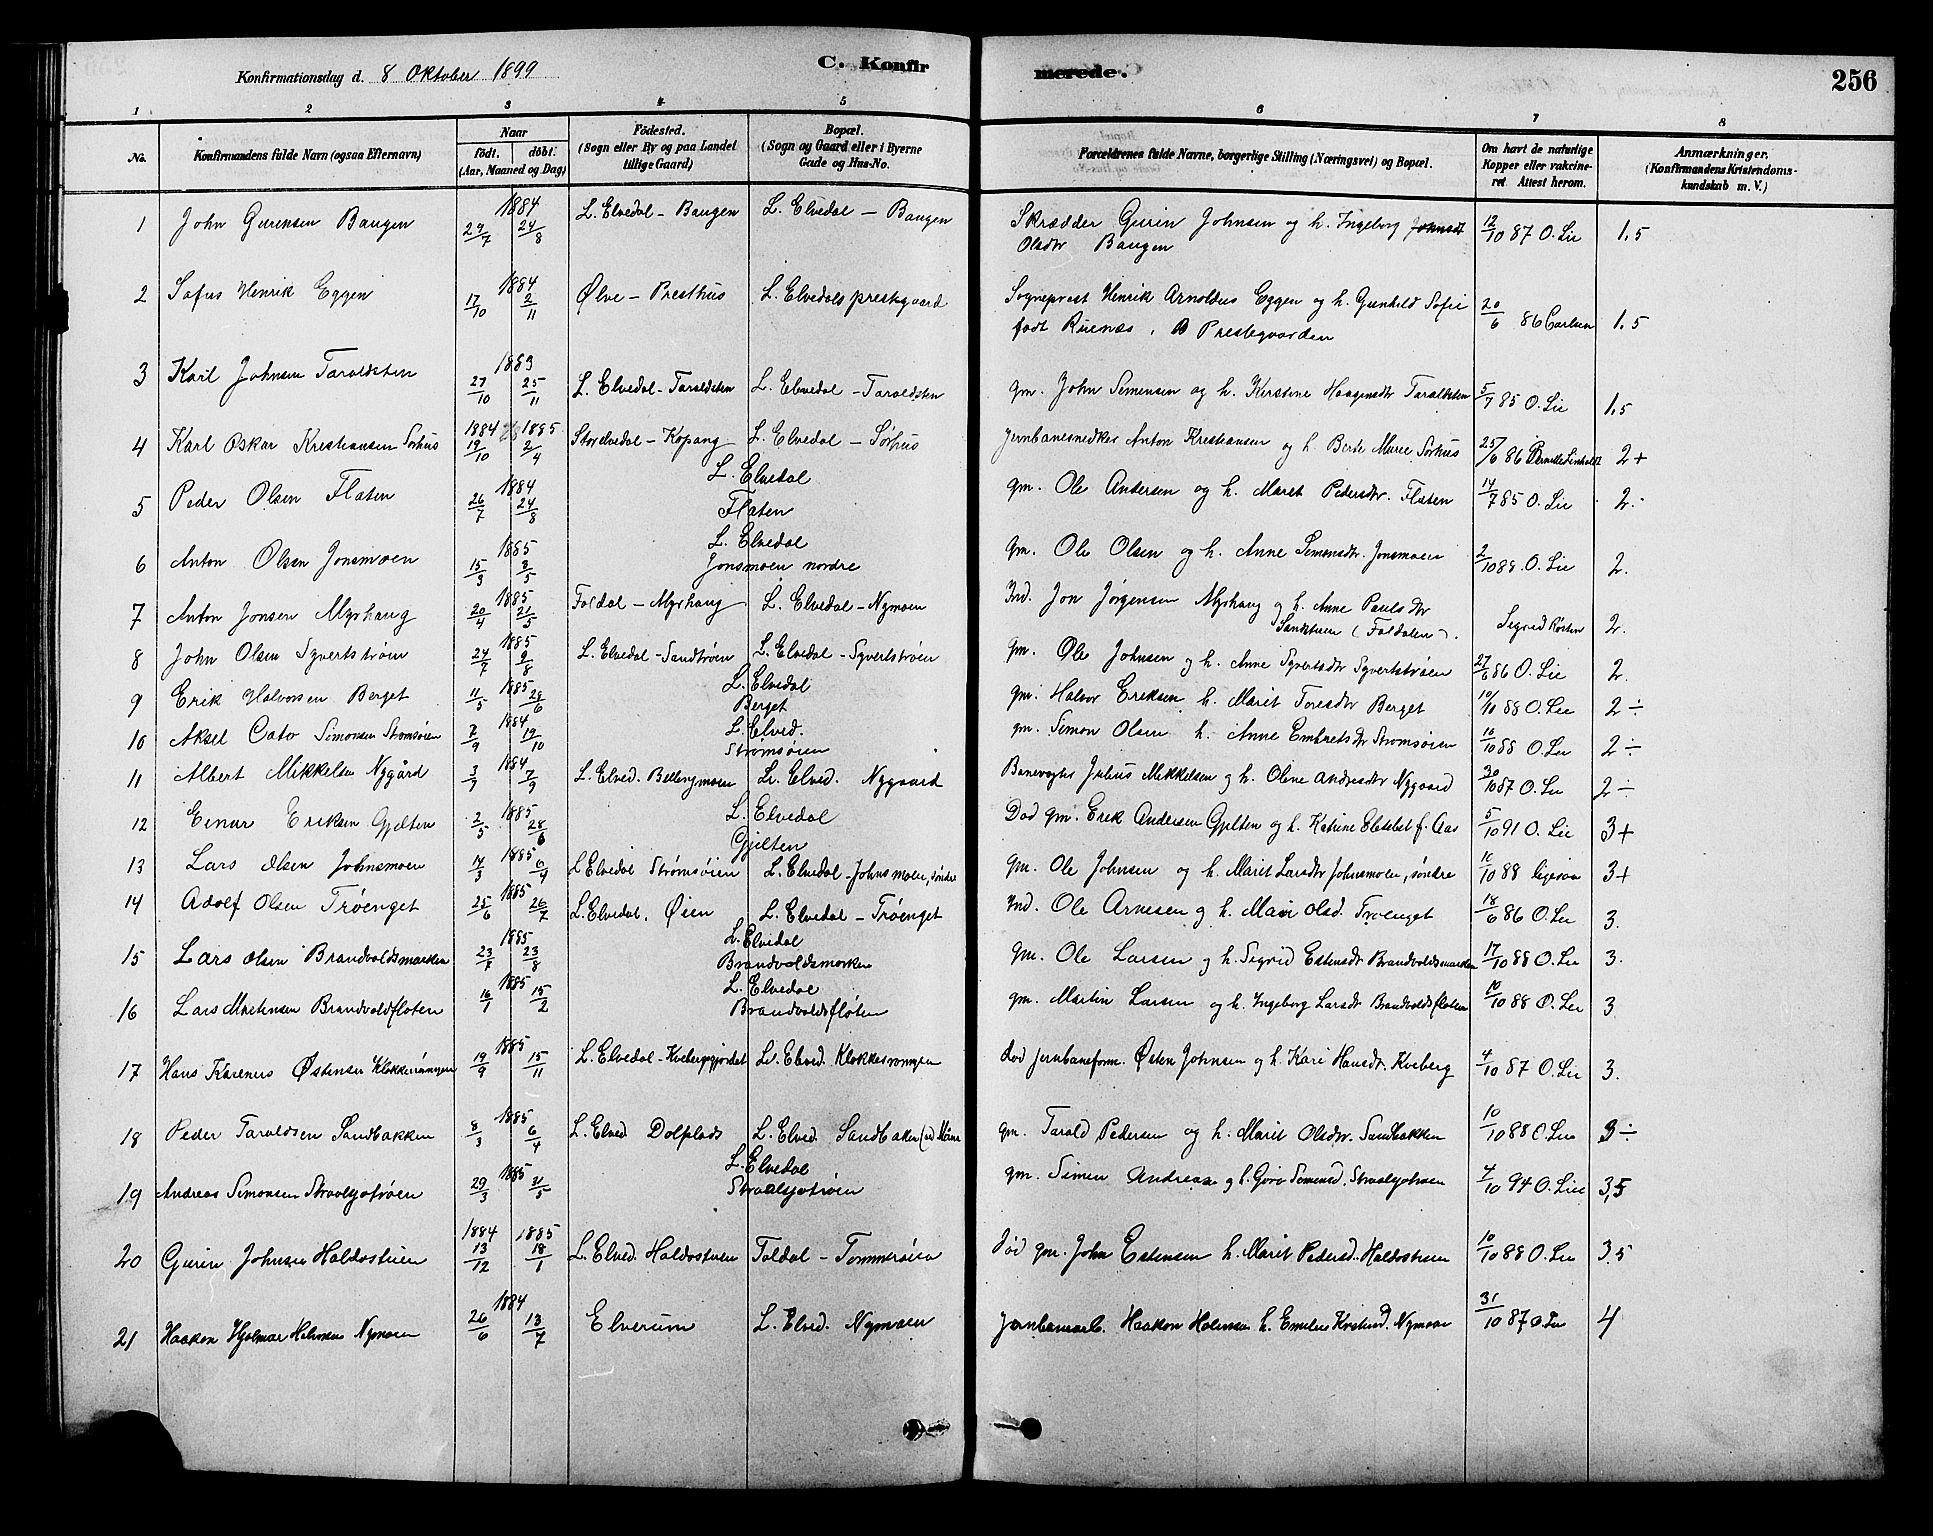 Konfirmationsdag d. 8 Oktober 1899
C. Konfirmerede.
256
1 2 3 4 5 6 7 8
No.
Konfirmandens fulde Navn (ogsaa Efternavn)
Naar
födt. döbt.
(Aar, Maaned og Dag)
Födested.
(Sogn eller By og paa Landet tillige Gaard)
Bopæl.
(Sogn og Gaard eller i Byerne Gade og Hus-No.
Forældrenes fulde Navne, borgerlige Stilling (Næringsvei) og Bopæl.
Om havt de naturlige Kopper eller vakcineret. Attest herom.
Anmærkninger.
(Konfirmandens Kristendomskundskab m. V.)
1 John Gurinsen Baugen 1884 29/7 24/8 L. Elvedal - Baugen L. Elvedal - Baugen Skrædder Gurin Johnsen og h. Ingeborg Olsdtr Baugen 12/10 87 O. Lie 1,5
2 Sofus Henrik Eggen 1884 17/10 2/11 Ølve - Presthus L. Elvedals prestegaard Sogneprest Henrik Arnoldus Eggen og h. Gunhild Sofie født Ruenæs, Prestegaarden 20/6 86 Carlsen 1,5
3 Karl Johnsen Taraldsten 1883 27/10 25/11 L. Elvedal - Taraldsten L. Elvedal - Taraldsten gm. John Simensen og h. Kerstine Haagensdtr Taraldsten 5/7 85 O. Lie 1,5
4 Karl Oskar Kristiansen Sørhus 1884 19/10 1885 2/4 Storelvedal - Kopang L. Elvedal - Sørhus Jernbanesnedker Anton Kristiansen og h. Berte Marie Sørhus 25/6 86 2+
5 Peder Olsen Flaten 1884 26/7 24/8 L. Elvedal Flaten gm. Ole Andersen og h. Maret Pedersdtr. Flaten 14/7 85 O. Lie 2.
6 Anton Olsen Jonsmoen 1885 15/3 3/5 L. Elvedal Jonsmoen nordre gm. Ole Olsen og h. Anne Simensdtr. Jonsmoen 2/10 88. O. Lie 2.
7 Anton Jonsen Myrhaug 1885 20/4 21/5 Foldal - Myrhaug L. Elvedal - Nymoen Ind. Jon Jørgensen Myrhaug og h. Anne Paulsdtr (Foldalen). Sigrid 2.
8 John Olsen Syvertstrøen 1885 24/7 9/8 L. Elvedal - Sandtrøen L. Elvedal - Syvertstrøen gm. Ole Johnsen og h. Anne Syvertsdtr Syvertstrøen 27/6 86 O. Lie 2.
9 Erik Halvorsen Berget 1885 11/5 28/6 L. Elvedal Berget gm. Halvor Eriksen h. Marit Toresdtr Berget 10/10 88 O. Lie 2 ÷
10 Aksel Cato Simonsen Strømsøien 1884 7/9 19/10 L. Elved. Strømsøien gm. Simon Olsen h. Anne Embretsdtr Strømsøien 10/10 88 O. Lie 2 ÷
11 Albert Mikkelsen Nygård 1884 7/9 L. Elved. Bellingmoen L. Elved. Nygaard Banevogter Julius Mikkelsen og h. Oline Andreasdtr Nygaard 30/10 87 O. Lie 2 ÷
12 Einar Eriksen Gjelten 1885 2/5 28/6 L. Elvedal Gjelten Død gm. Erik Andersen Gjelten og h. Katrine Elisebet f. Aas 5/10 91 O. Lie 3+
13 Lars Olsen Johnsmoen 1885 17/3 6/4 L Elvedal Strømsøien L. Elvedal - Johnsmoen, søndre gm. Ole Johnsen og h. Marit Larsdtr Johnsmoen, søndre 10/10 88 ligesaa 3+
14 Adolf Olsen Trøenget 1885 25/6 26/7 L. Elvedal. Øien L. Elvedal - Trøenget Ind. Ole Arnesen og h. Mari Olsd. Trøenget 18/6 86 O. Lie 3.
15 Lars Olsen Brandvoldsmarken 1885 23/7 23/8 L. Elvedal Brandvoldsmarken gm. Ole Larsen og h. Sigrid Estensdtr Brandvoldsmarken 17/10 88 O. Lie 3.
16 Lars Martinsen Brandvoldsfloten 1885 16/1 15/2 L. Elvedal Brandvoldsfloten gm. Martin Larsen og h. Ingeborg Larsdtr Brandvoldsfloten 10/10 88 O. Lie 3.
17 Hans Karenus Østensen Klokkerrønningen 1885 19/9 15/11 L. Elvedal - Kvebergsgjordet L. Elved. Klokkerrønningen død jernbaneform. Østen Johnsen og h. Kari Hansdtr. Kveberg 4/10 87 O. Lie 3.
18 Peder Taraldsen Sandbakken 1885 8/3 6/4 L. Elved Dolplads L. Elved. Sandbaken gm. Tarald Pedersen og h. Marit Olsdtr. Sandbakken 10/10 88 O. Lie 3 ÷
19 Andreas Simonsen Straalsjøtrøen 1885 29/3 31/5 L. Elvedal Straalsjøtrøen gm. Simen Andreas og h. Gjøro Simensd. Straalsjøtrøen 4/10 94 O. Lie 3,5
20 Gurin Johnsen Haldostuen 1884 13/12 1885 18/1 L. Elved. Haldostuen Foldal - Tommerøien død gm. John Estensen h. Marit Pedersd. Haldostuen 10/10 88 O. Lie 3,5
21 Haakon Hjalmar Nymoen 1884 26/6 13/7 Elverum L. Elved. Nymoen Jernbanearb. Haakon h. Emelie Nymoen 31/10 87 O. Lie 4